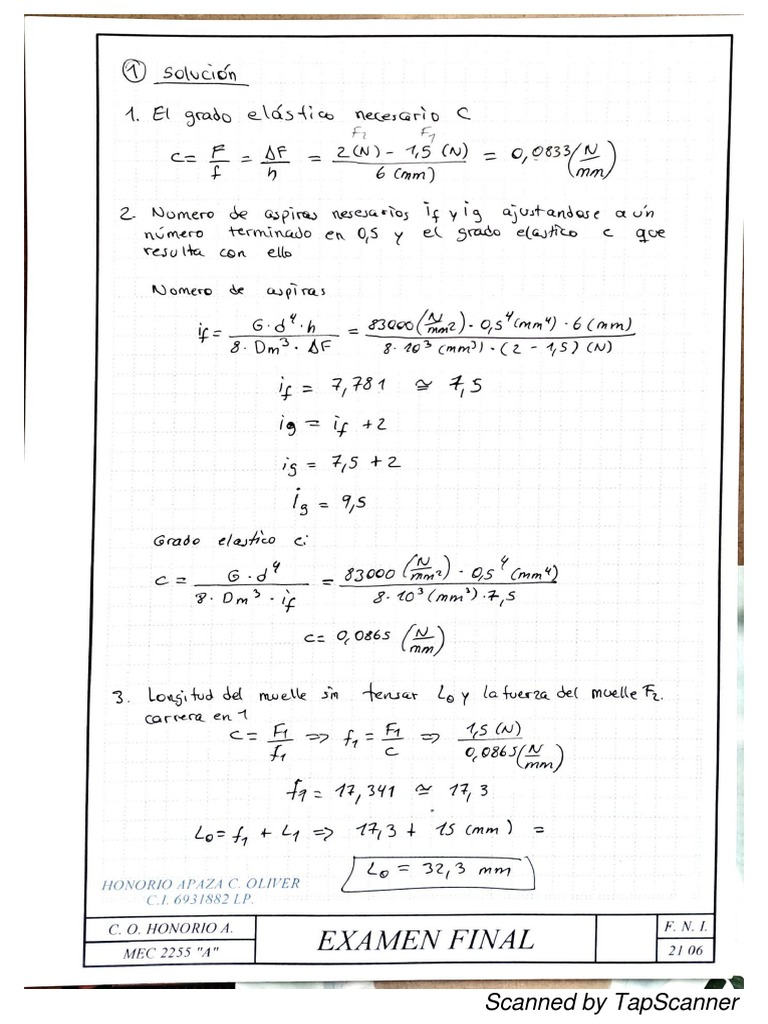 ① Solución
1. El grado elástico necesario C
F2 F1
C = F/f = ΔF/h = 2(N) - 1,5 (N)/6 (mm) = 0,0833 (N/mm)
2. Numero de aspiras nesesarios if y ig ajustandose a un
número terminado en 0,5 y el grado elastico c que
resulta con ello
Nomero de aspiras
if = G·d⁴·h/8·Dm³·ΔF = 83000(N/mm2)·0,5⁴(mm⁴)·6(mm)/8·10³(mm³)·(2-1,5)(N)
if = 7,781 ≃ 7,5
ig = if +2
ig = 7,5 + 2
ig = 9,5
Grado elastico c:
C = G·d⁴/8·Dm³·if = 83000 (N/mm2)·0,5⁴(mm⁴)/8·10³(mm³)·7,5
C = 0,0865 (N/mm)
3. Longitud del muelle sin tensar Lo y la fuerza del muelle F2.
carrera en 1
C = F1/f1 => f1 = F1/C => 1,5 (N)/0,0865(N/mm)
f1 = 17,341 ≃ 17,3
Lo = f1 + L1 => 17,3 + 15 (mm) =
Lo = 32,3 mm
HONORIO APAZA C. OLIVER
C.I. 6931882 LP.
C. O. HONORIO A.
MEC 2255 "A"
EXAMEN FINAL
F. N. I.
21 06
Scanned by TapScanner